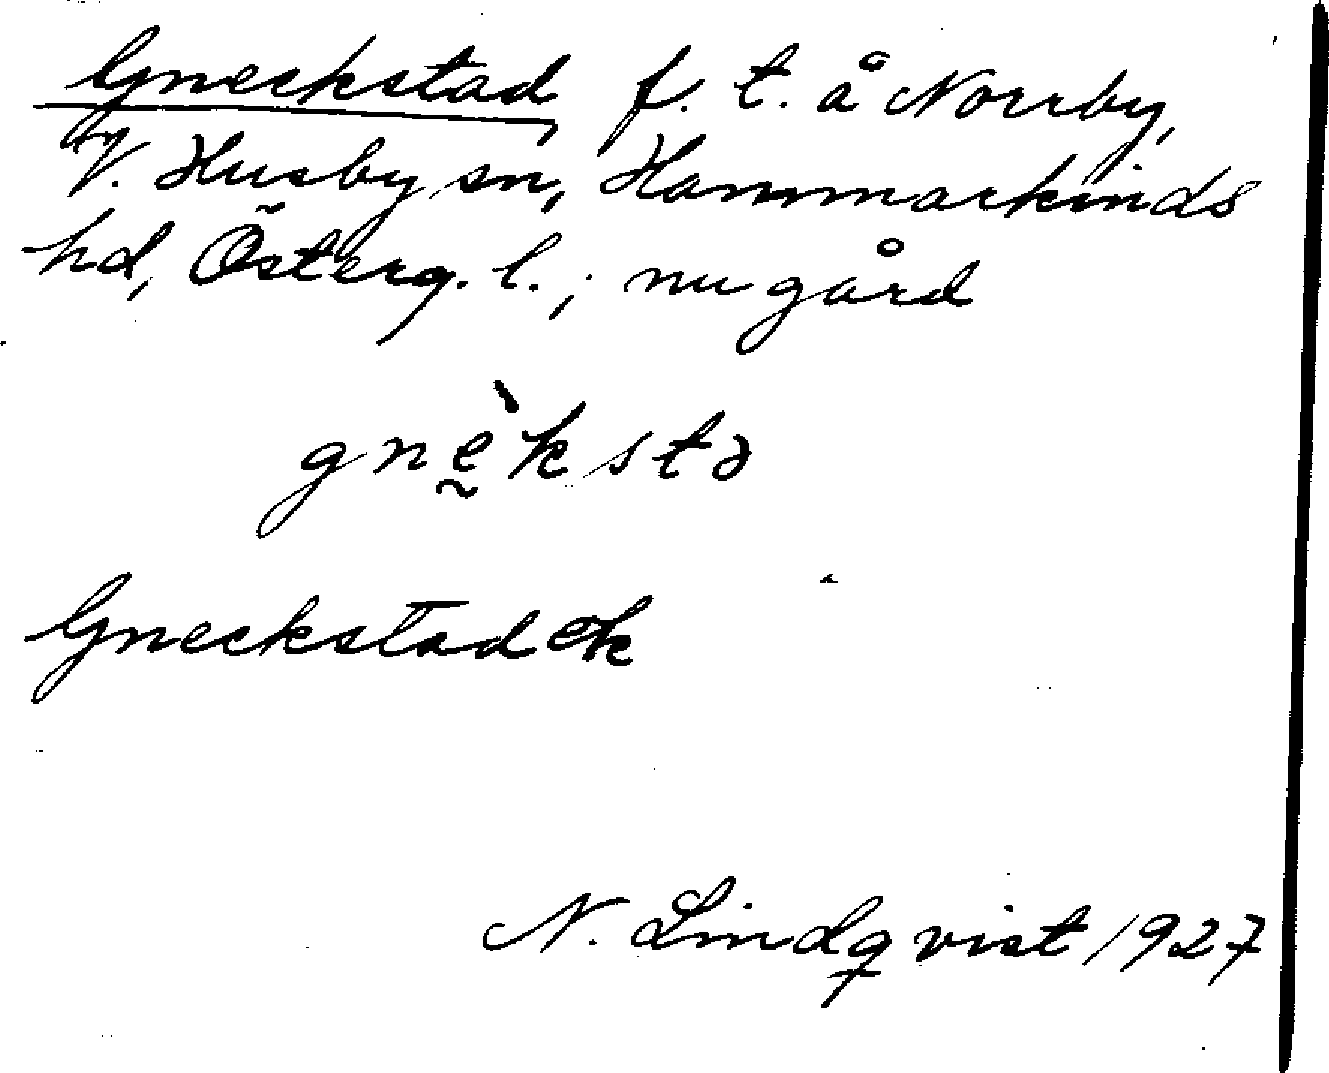 Gneckstad f. t. å Norrby,
V. Husby sn, Hammarkinds
hd, Österg. l.; nu gård
gnḛ̀kstə
Gneckstad ek
N. Lindqvist 1927